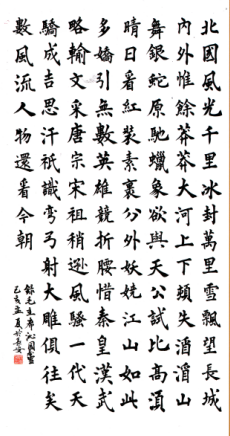 北國風光千里冰封萬里雪飄望長城
內外惟餘莽莽大河上下頓失滔滔山
舞銀蛇原馳蠟象欲與天公試比高須
晴日看紅裝素裹分外妖嬈江山如此
多嬌引無數英雄競折腰惜秦皇漢武
略輸文采唐宗宋祖稍遜風騷一代天
驕成吉思汗祇識彎弓射大雕俱往矣
數風流人物還看今朝
錄毛主席沁園春雪
己亥孟夏於